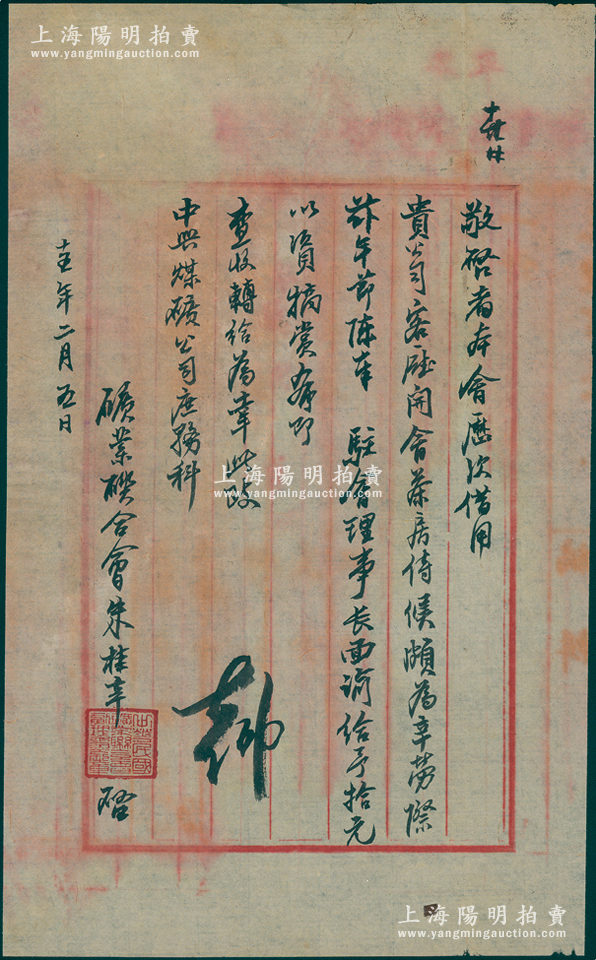 敬啓者本會歷次借用
貴公司客廳開會茶房侍候頗為辛勞際
茲年節陳奉 駐會理事長面諭給予拾元
以資犒賞希即
查收轉給為幸此致
中興煤礦公司庶務科
礦業聯合會朱桂辛 啓
十五年二月五日
上海陽明拍賣
www.yangmingauction.com
上海陽明拍賣
www.yangmingauction.com
上海陽明拍賣
www.yangmingauction.com